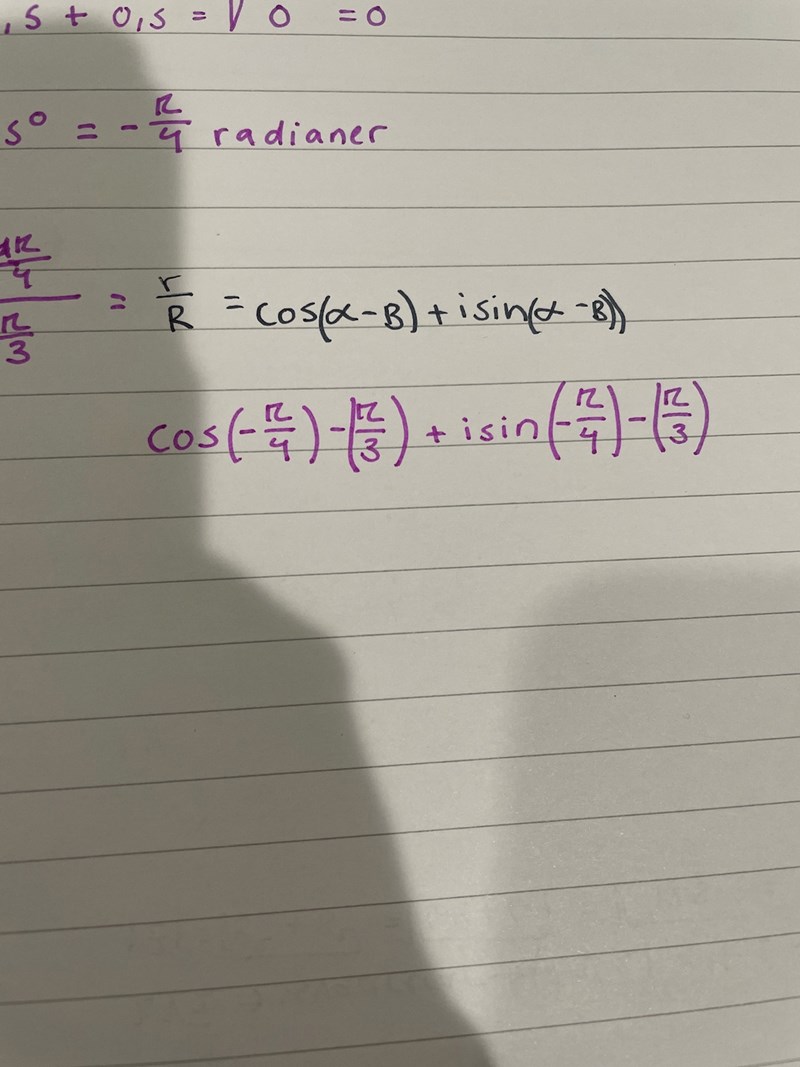 ,5 + 0,5 = √ 0 = 0
5° = - π/4 radianer
π/4 / π/3 = r/R = cos(α-B) + i sin(α-B))
cos(-π/4) - (π/3) + i sin(-π/4) - (π/3)